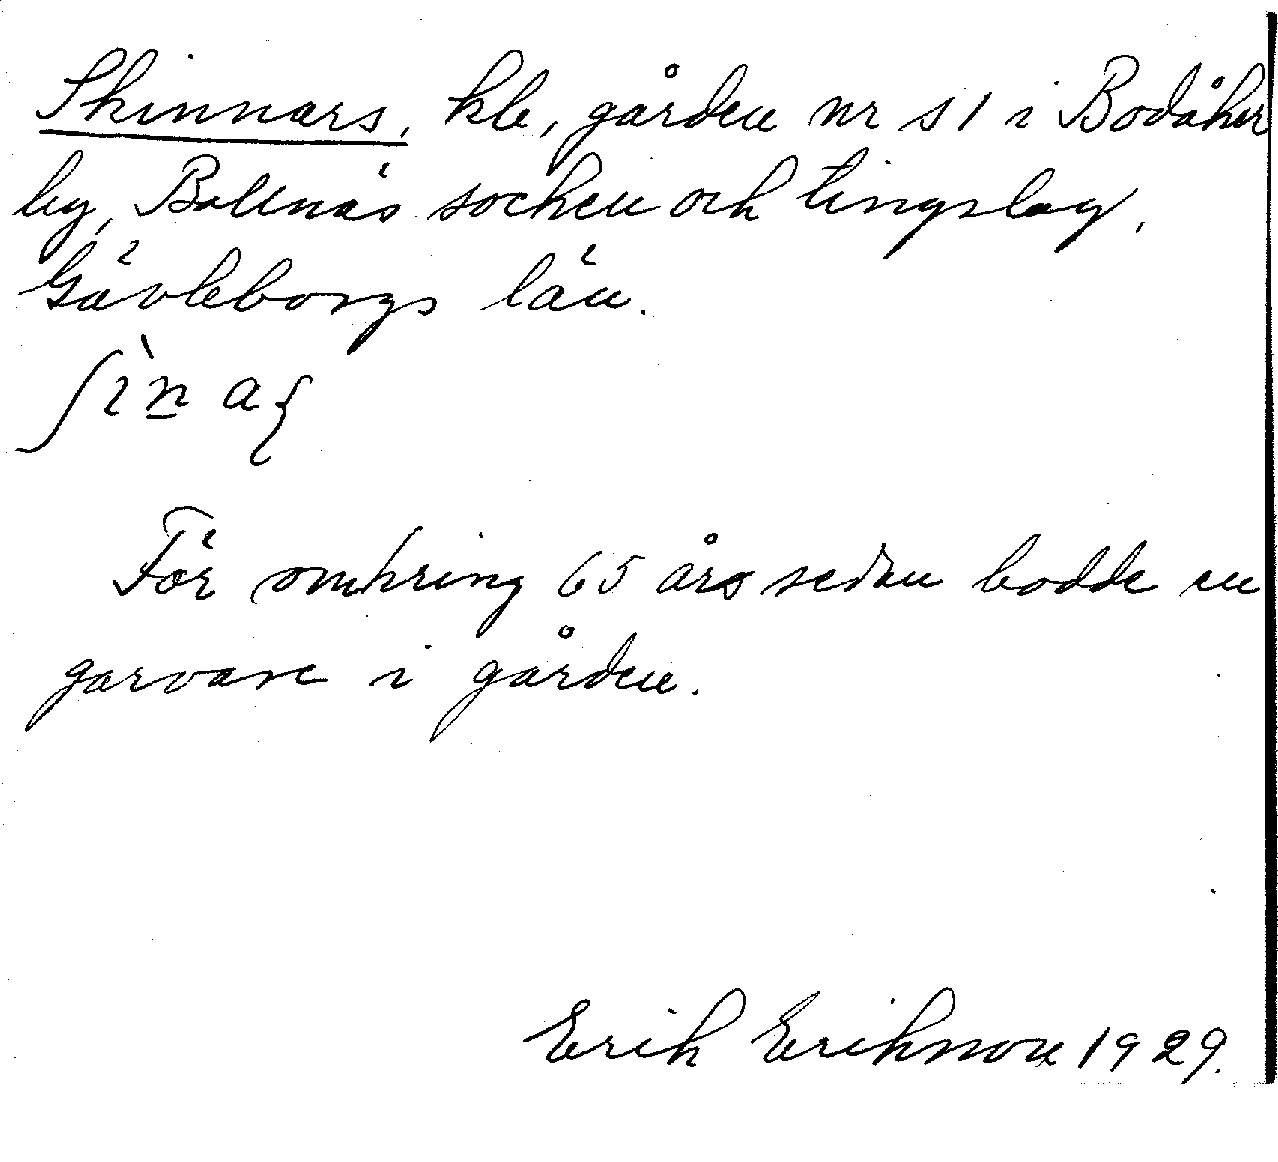 Skinnars, kle, gården nr s1 i Bodåker
by, Bollnäs socken och tingslag,
Gävleborgs län.
För omkring 65 års sedan bodde en
garvare i gården.
Erik Erikson 1929.